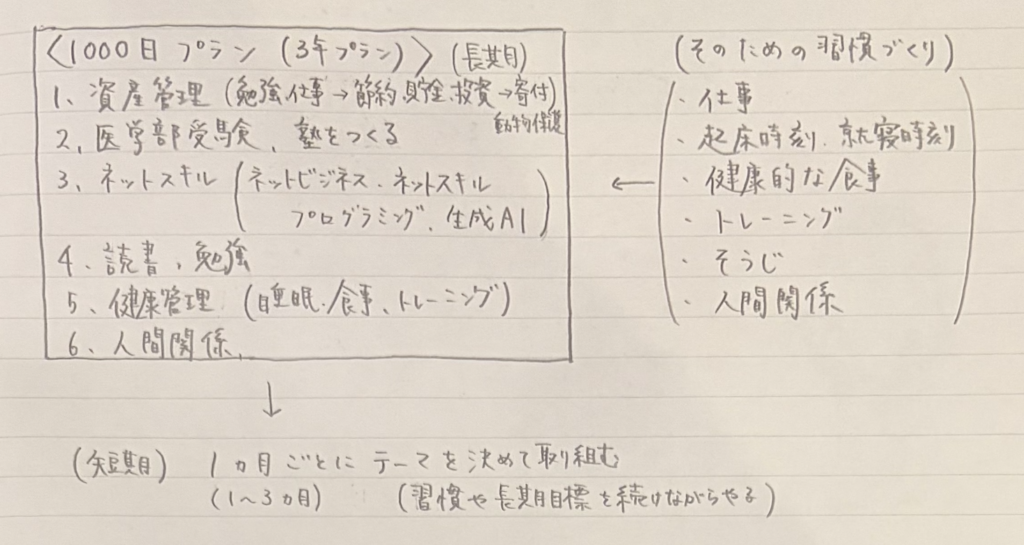 〈1000日 プラン (3年プラン)〉 (長期)
1、資産管理 (勉強、仕事→節約、貯金、投資→寄付)
動物保護
2、医学部受験、塾をつくる
3、ネットスキル (ネットビジネス・ネットスキル
プログラミング、生成AI)
4、読書、勉強
5、健康管理 (睡眠・食事、トレーニング)
6、人間関係、
(そのための習慣づくり)
・仕事
・起床時刻、就寝時刻
・健康的な食事
・トレーニング
・そうじ
・人間関係
←
↓
(短期) 1ヵ月ごとにテーマを決めて取り組む
(1〜3ヵ月) (習慣や長期目標を続けながらやる)